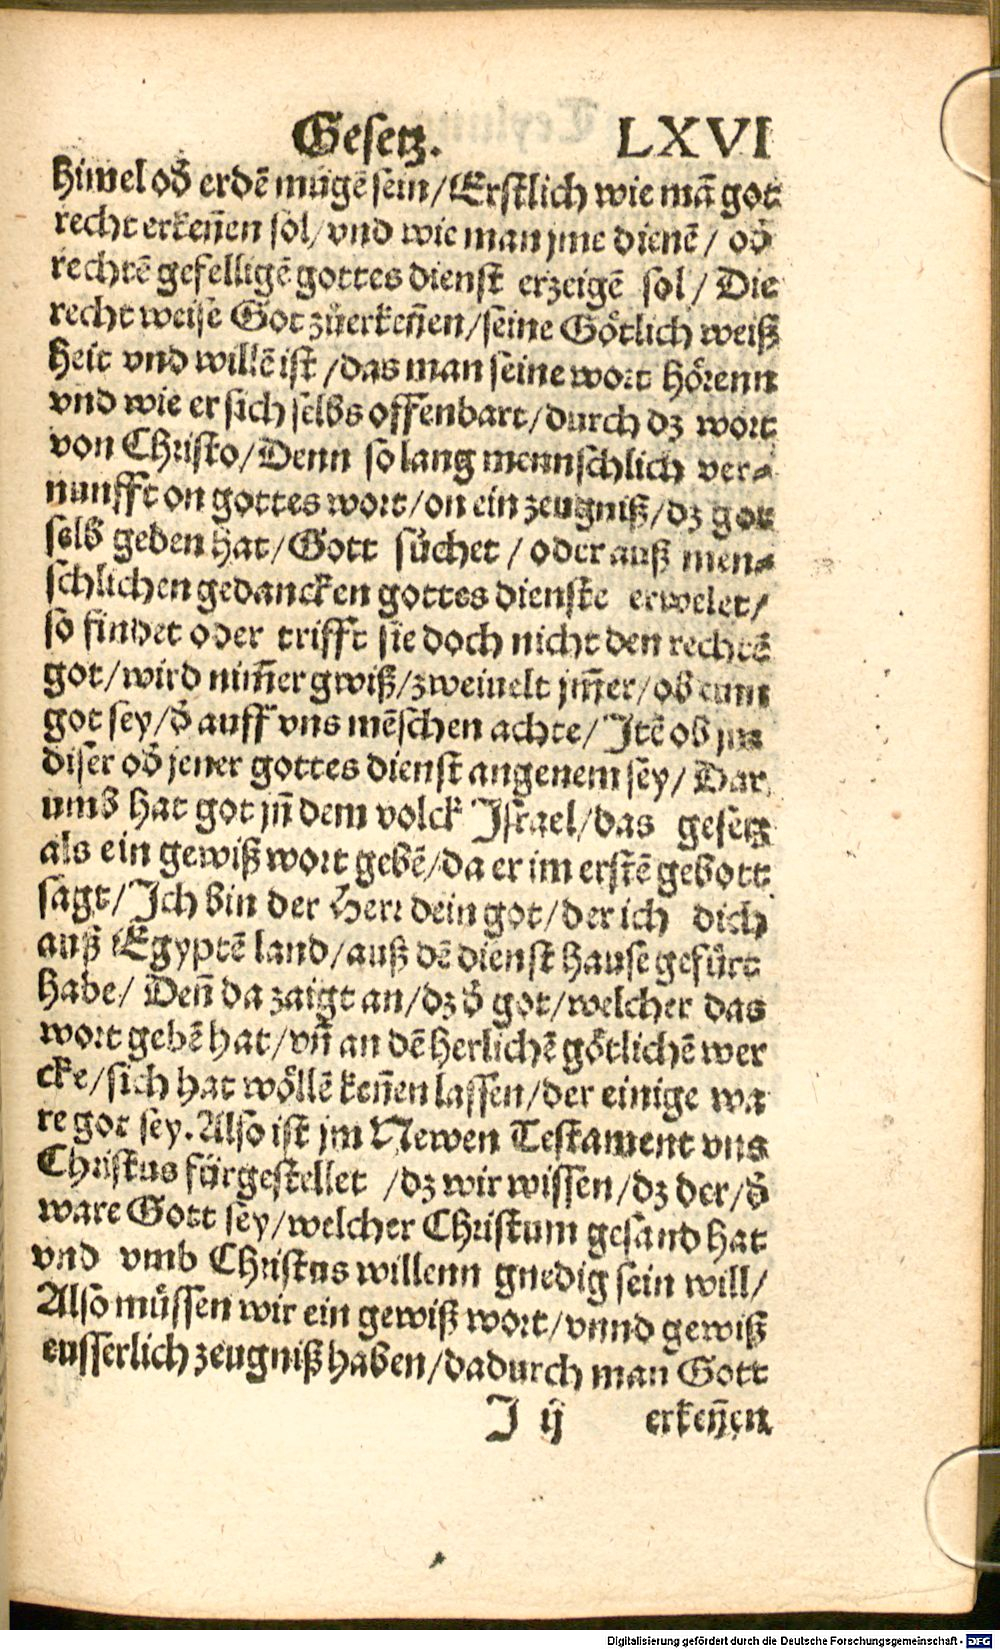 Gesetz. LXVI
himel od̕ erdē mügē sein/Erstlich wie mā got
recht erkeñen sol/vnd wie man jme dienē/ od̕
rechtē gefelligē gottes dienst erzeigē sol/ Die
recht weise Got zůerkeñen/seine Götlich weiß
heit vnd willē ist /das man seine wort hörenn
vnd wie er sich selbs offenbart/durch dz wort
von Christo/Denn so lang mennschlich ver⸗
nunfft on gottes wort/on ein zeugniß/dz got
selb geben hat/Gott sůchet / oder auß men⸗
schlichen gedancken gottes dienste erwelet/
so findet oder trifft sie doch nicht den rechtē
got/wird nim̄er gwiß/zweiuelt jm̄er/ob einn
got sey/d̕ auff vns mēschen achte/Itē ob jm
diser od̕ jener gottes dienst angenem sey/ Dar
umb hat got jñ dem volck Israel/das gesetz
als ein gewiß wort gebē/da er im erstē gebott
sagt/Ich bin der Herr dein got/der ich dich
auß Egyptē land/auß dē dienst hause gefürt
habe/ Deñ da zaigt an/dz d̕ got/welcher das
wort gebē hat/vñ an dē herlichē götlichē wer
cke/sich hat wöllē keñen lassen/der einige wa
re got sey. Also ist jm Newen Testament vns
Christus fürgestellet /dz wir wissen/dz der/d̕
ware Gott sey/welcher Christum gesand hat
vnd vmb Christus willenn gnedig sein will/
Also müssen wir ein gewiß wort/vnnd gewiß
eusserlich zeugniß haben/dadurch man Gott
J ij erkeñen
Digitalisierung gefördert durch die Deutsche Forschungsgemeinschaft - DFG